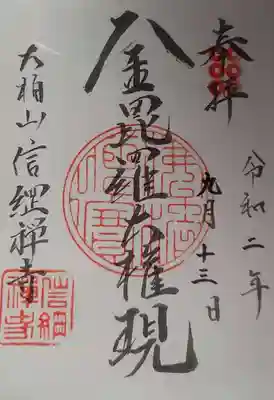 奉拝
令和二年
九月十三日
八金毘羅大権現
大柏山信綱禅寺
信綱
禅寺